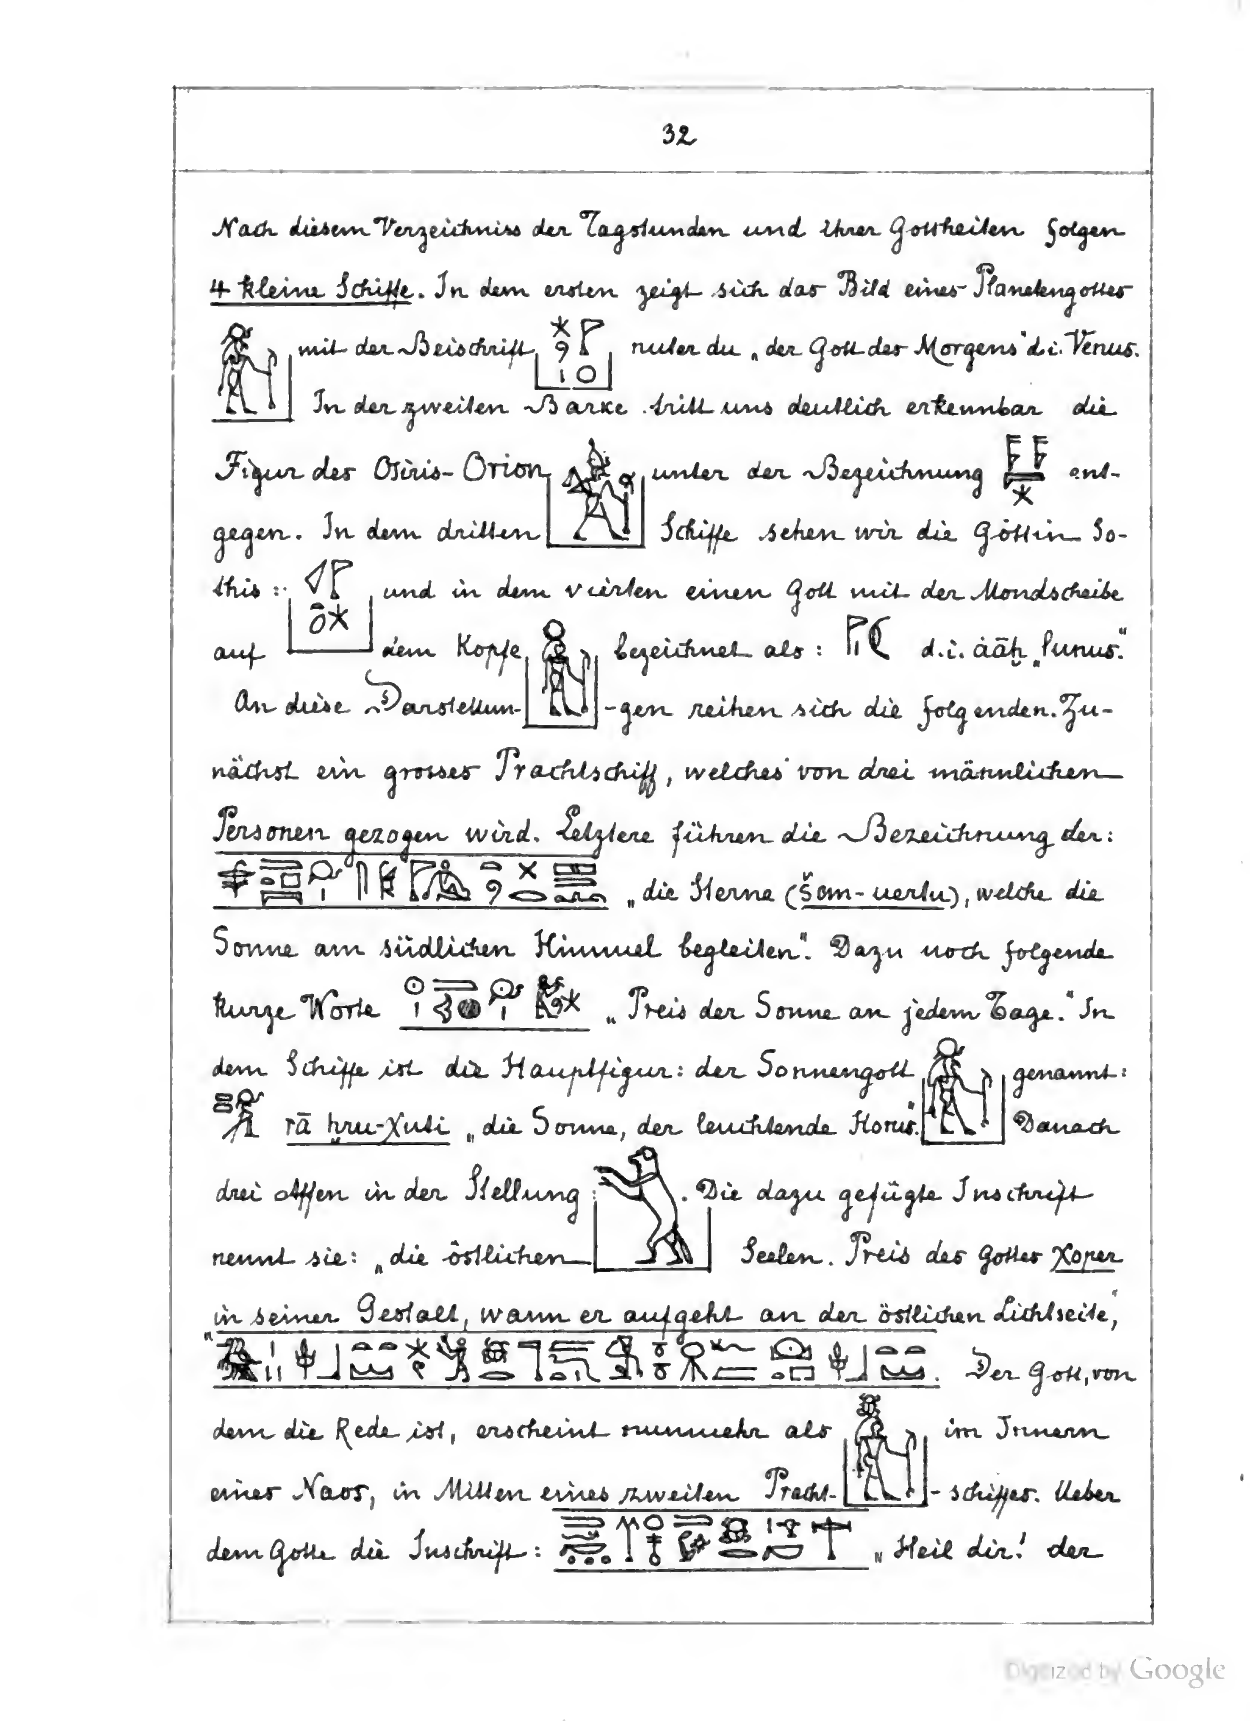 32
Nach diesem Verzeichniss der Tagstunden und ihrer Gottheiten folgen
4 kleine Schiffe. In dem ersten zeigt sich das Bild eines Planetengottes
mit der Beischrift nuter du „der Gott des Morgens" d.i. Venus.
In der zweiten Barke tritt uns deutlich erkennbar die
Figur des Osiris-Orion unter der Bezeichnung ent-
gegen. In dem dritten Schiffe sehen wir die Göttin So-
this: und in dem vierten einen Gott mit der Mondscheibe
auf dem Kopfe bezeichnet als: d.i. ȧāḥ „Lunus."
An diese Darstellun- -gen reihen sich die folgenden. Zu-
nächst ein grosses Prachtschiff, welches von drei männlichen
Personen gezogen wird. Letztere führen die Bezeichnung der:
„die Sterne (šem-uertu), welche die
Sonne am südlichen Himmel begleiten". Dazu noch folgende
kurze Worte „Preis der Sonne an jedem Tage." In
dem Schiffe ist die Hauptfigur: der Sonnengott genannt:
rā ḥru-χuti „die Sonne, der leuchtende Horus". Danach
drei Affen in der Stellung: . Die dazu gefügte Inschrift
nennt sie: „die östlichen Seelen. Preis des Gottes χoper
in seiner Gestalt, wann er aufgeht an der östlichen Lichtseite,"
Der Gott, von
dem die Rede ist, erscheint nunmehr als im Innern
eines Naos, in Mitten eines zweiten Pracht- -schiffes. Ueber
dem Gotte die Inschrift: „Heil dir! der
Digitized by Google